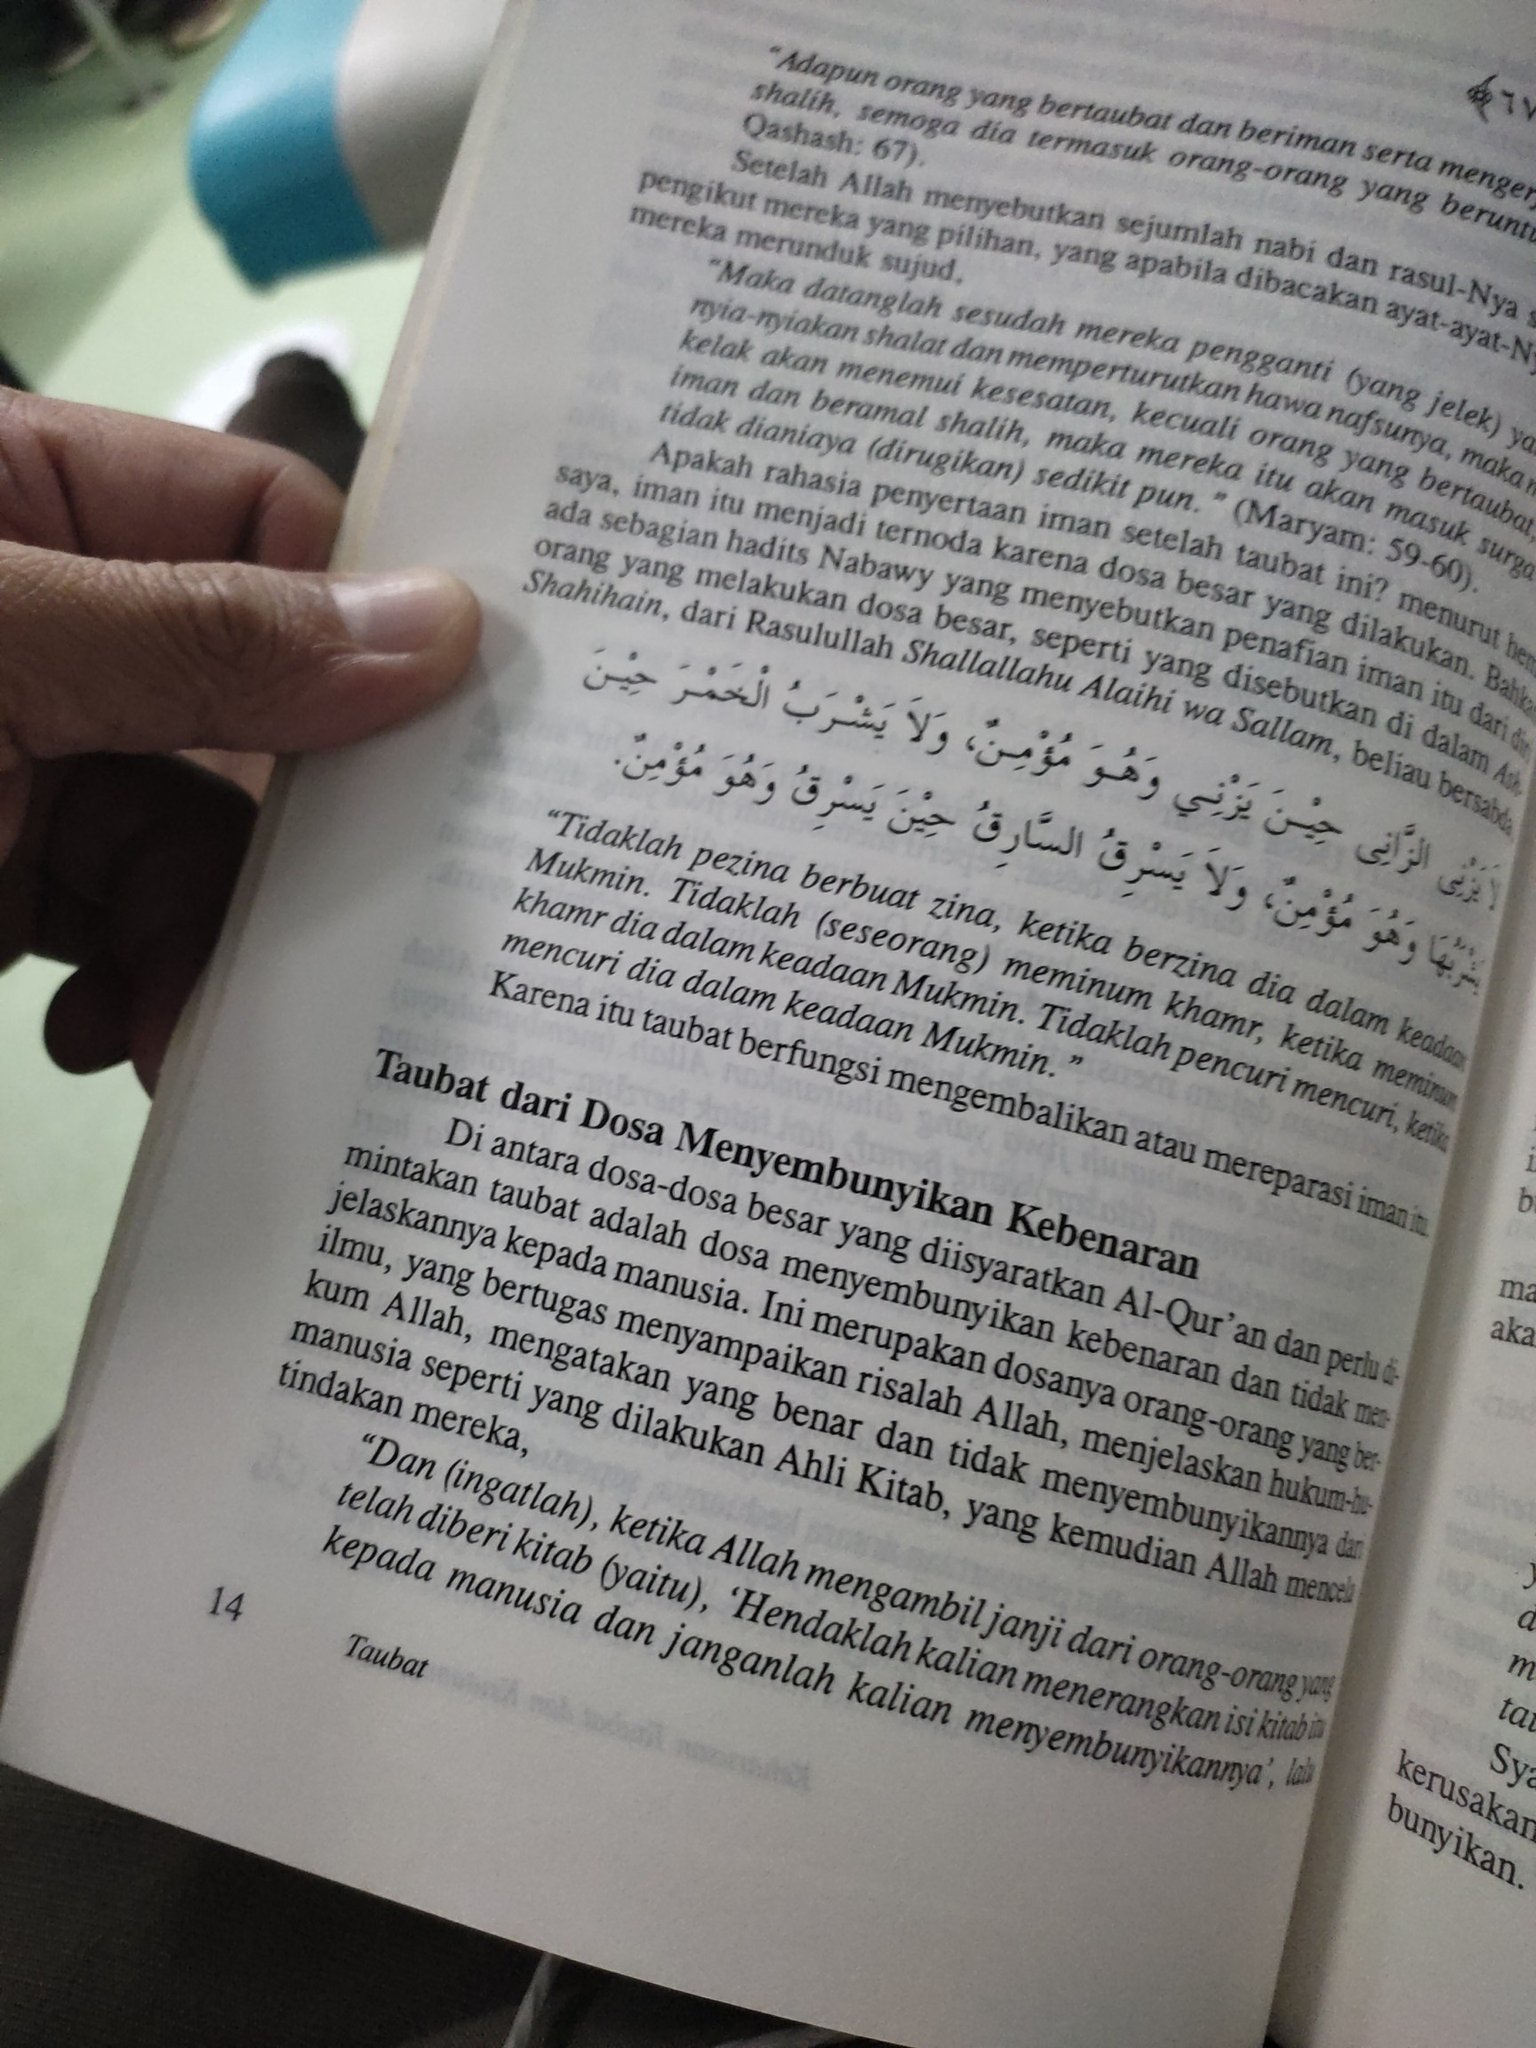 ﴿٦٧
"Adapun orang yang bertaubat dan beriman serta
shalih, semoga dia termasuk orang-orang yang
Qashash: 67).
Setelah Allah menyebutkan sejumlah nabi dan rasul-Nya
pengikut mereka yang pilihan, yang apabila dibacakan
mereka merunduk sujud,
"Maka datanglah sesudah mereka pengganti (yang jelek)
nyia-nyiakan shalat dan memperturutkan hawa nafsunya, maka
kelak akan menemui kesesatan, kecuali orang yang bertaubat,
iman dan beramal shalih, maka mereka itu akan masuk surga
tidak dianiaya (dirugikan) sedikit pun." (Maryam: 59-60).
Apakah rahasia penyertaan iman setelah taubat ini? menurut
saya, iman itu menjadi ternoda karena dosa besar yang dilakukan.
ada sebagian hadits Nabawy yang menyebutkan penafian iman itu dari diri
orang yang melakukan dosa besar, seperti yang disebutkan di dalam Ash-
Shahihain, dari Rasulullah Shallallahu Alaihi wa Sallam, beliau bersabda
لاَ يَزْنِى الزَّانِى حِيْنَ يَزْنِي وَهُوَ مُؤْمِنٌ، وَلاَ يَشْرَبُ الْخَمْرَ حِيْنَ
يَشْرَبُهَا وَهُوَ مُؤْمِنٌ، وَلاَ يَسْرِقُ السَّارِقُ حِيْنَ يَسْرِقُ وَهُوَ مُؤْمِنٌ.
"Tidaklah pezina berbuat zina, ketika berzina dia dalam keadaan
Mukmin. Tidaklah (seseorang) meminum khamr, ketika meminum
khamr dia dalam keadaan Mukmin. Tidaklah pencuri mencuri, ketika
mencuri dia dalam keadaan Mukmin."
Karena itu taubat berfungsi mengembalikan atau mereparasi iman itu.
Taubat dari Dosa Menyembunyikan Kebenaran
Di antara dosa-dosa besar yang diisyaratkan Al-Qur'an dan perlu di-
mintakan taubat adalah dosa menyembunyikan kebenaran dan tidak men-
jelaskannya kepada manusia. Ini merupakan dosanya orang-orang yang ber-
ilmu, yang bertugas menyampaikan risalah Allah, menjelaskan hukum-hu-
kum Allah, mengatakan yang benar dan tidak menyembunyikannya dari
manusia seperti yang dilakukan Ahli Kitab, yang kemudian Allah mencela
tindakan mereka,
"Dan (ingatlah), ketika Allah mengambil janji dari orang-orang yang
telah diberi kitab (yaitu), 'Hendaklah kalian menerangkan isi kitab itu
kepada manusia dan janganlah kalian menyembunyikannya', lalu
14
Taubat
kerusakan
bunyikan.